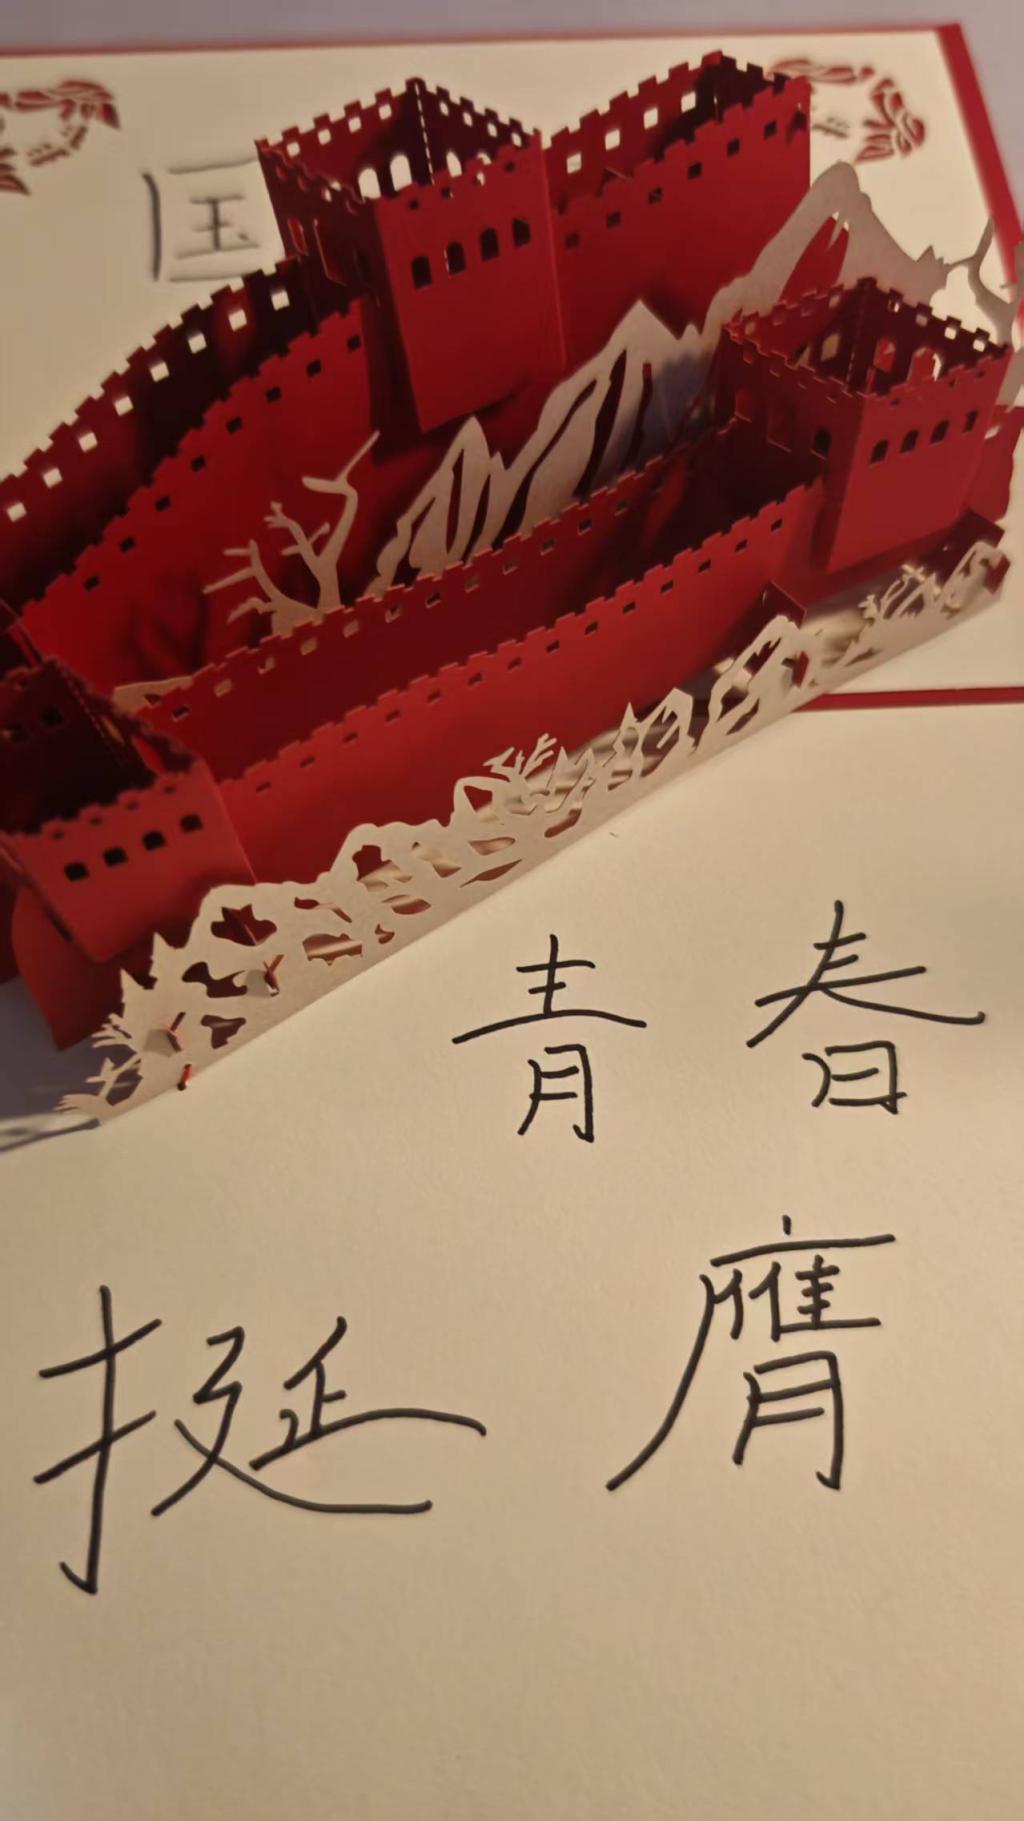 国
青春
挺膺